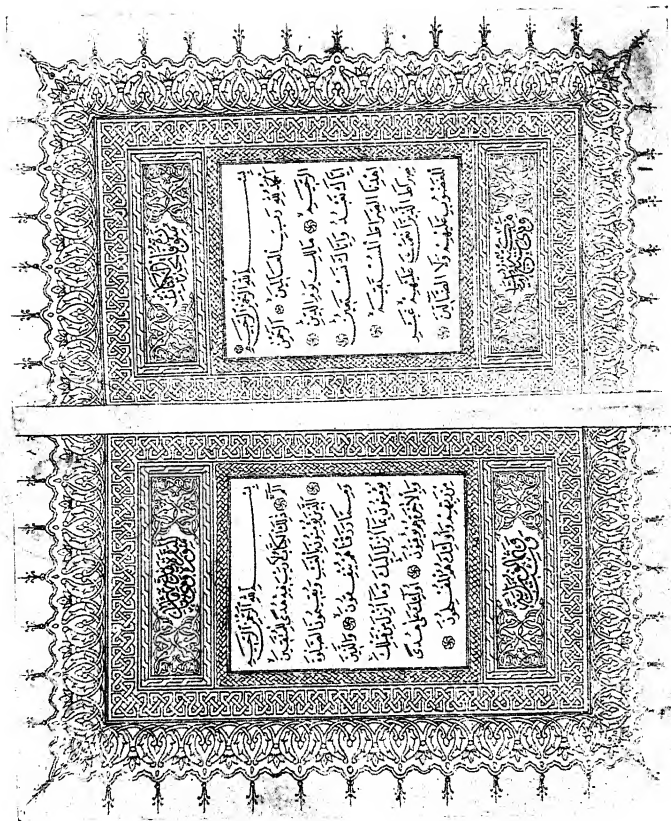 بِسْمِ اللهِ الرَّحْمٰنِ الرَّحِيمِ
اَلْحَمْدُ لِلّٰهِ رَبِّ الْعَالَمِينَ الرَّحْمٰنِ
الرَّحِيمِ مَالِكِ يَوْمِ الدِّينِ
اِيَّاكَ نَعْبُدُ وَاِيَّاكَ نَسْتَعِينُ
اِهْدِنَا الصِّرَاطَ الْمُسْتَقِيمَ
صِرَاطَ الَّذِينَ اَنْعَمْتَ عَلَيْهِمْ غَيْرِ
الْمَغْضُوبِ عَلَيْهِمْ وَلَا الضَّالِّينَ
بِسْمِ اللهِ الرَّحْمٰنِ الرَّحِيمِ
الٓمٓ ذٰلِكَ الْكِتَابُ لَا رَيْبَ فِيهِ هُدًى لِلْمُتَّقِينَ
اَلَّذِينَ يُؤْمِنُونَ بِالْغَيْبِ وَيُقِيمُونَ الصَّلٰوةَ
وَمِمَّا رَزَقْنَاهُمْ يُنْفِقُونَ وَالَّذِينَ
يُؤْمِنُونَ بِمَا اُنْزِلَ اِلَيْكَ وَمَا اُنْزِلَ مِنْ قَبْلِكَ
وَبِالْاٰخِرَةِ هُمْ يُوقِنُونَ اُولٰئِكَ عَلٰى هُدًى
مِنْ رَبِّهِمْ وَاُولٰئِكَ هُمُ الْمُفْلِحُونَ